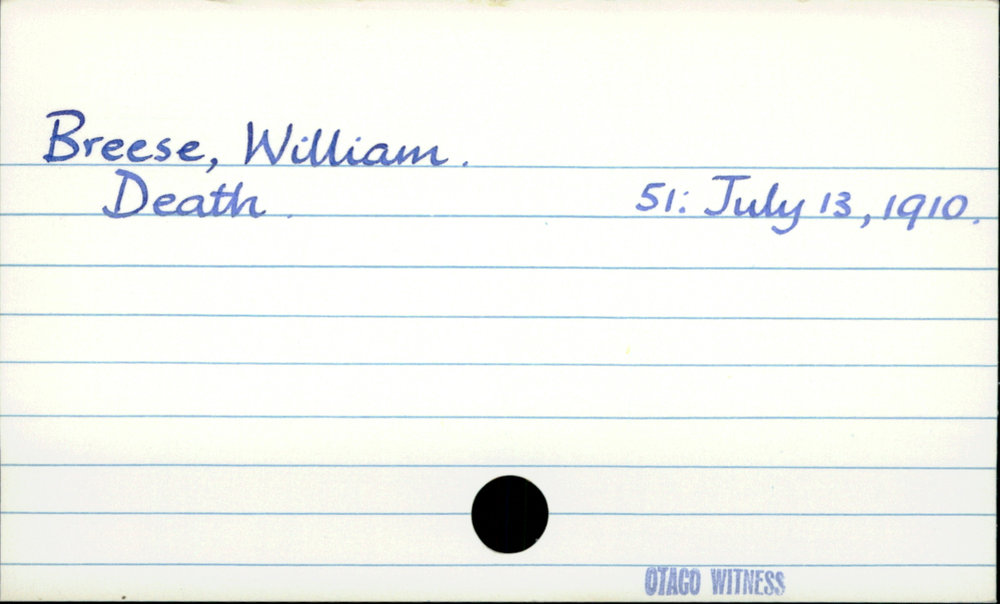 Breese, William.
Death. 51: July 13, 1910.
OTAGO WITNESS